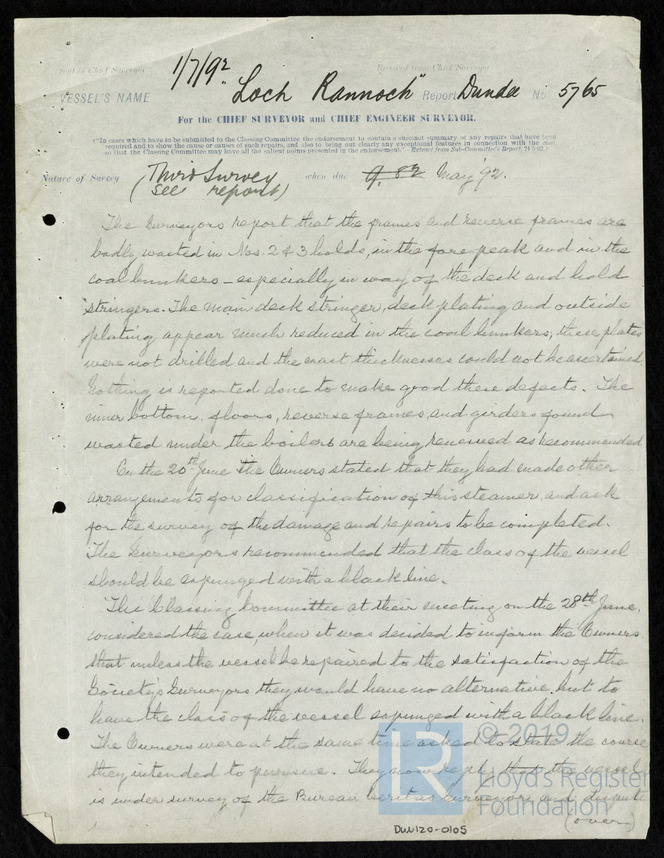 Sent to Chief Surveyor
Received from Chief Surveyor
1/7/92
VESSEL'S NAME "Loch Rannoch" Report Dundee No 5765
For the CHIEF SURVEYOR and CHIEF ENGINEER SURVEYOR.
("In cases which have to be submitted to the Classing Committee the endorsement to contain a succinct summary of any repairs that have been
required and to show the cause or causes of such repairs, and also to bring out clearly any exceptional features in connection with the case,
so that the Classing Committee may have all the salient points presented in the endorsement."—Extract from Sub-Committee's Report,
Nature of Survey Third Survey when due 9.82 May '92.
(see report)
The Surveyors report that the frames and reverse frames are
badly wasted in Nos. 2 & 3 holds, in the fore peak and in the
coal bunkers – especially in way of the deck and hold
stringers. The main deck stringer, deck plating and outside
plating appear much reduced in the coal bunkers; these plates
were not drilled and the exact thicknesses could not be ascertained.
Nothing is reported done to make good these defects. The
inner bottom, floors, reverse frames, and girders found
wasted under the boilers are being renewed as recommended
On the 20th June the Owners stated that they had made other
arrangements for classification of this steamer, and ask
for the survey of the damage and repairs to be completed.
The Surveyors recommended that the class of the vessel
should be expunged with a black line.
The Classing Committee at their meeting on the 28th June,
considered the case, when it was decided to inform the Owners
that unless the vessel be repaired to the satisfaction of the
Society's Surveyors they would have no alternative but to
have the class of the vessel expunged with a black line.
The Owners were at the same time asked to state the course
they intended to pursue. They now reply that the vessel
is under survey of the Bureau Veritas Surveyors and dispute
(over)
© 2019
LR
Lloyd's Register
Foundation
DUN120-0105